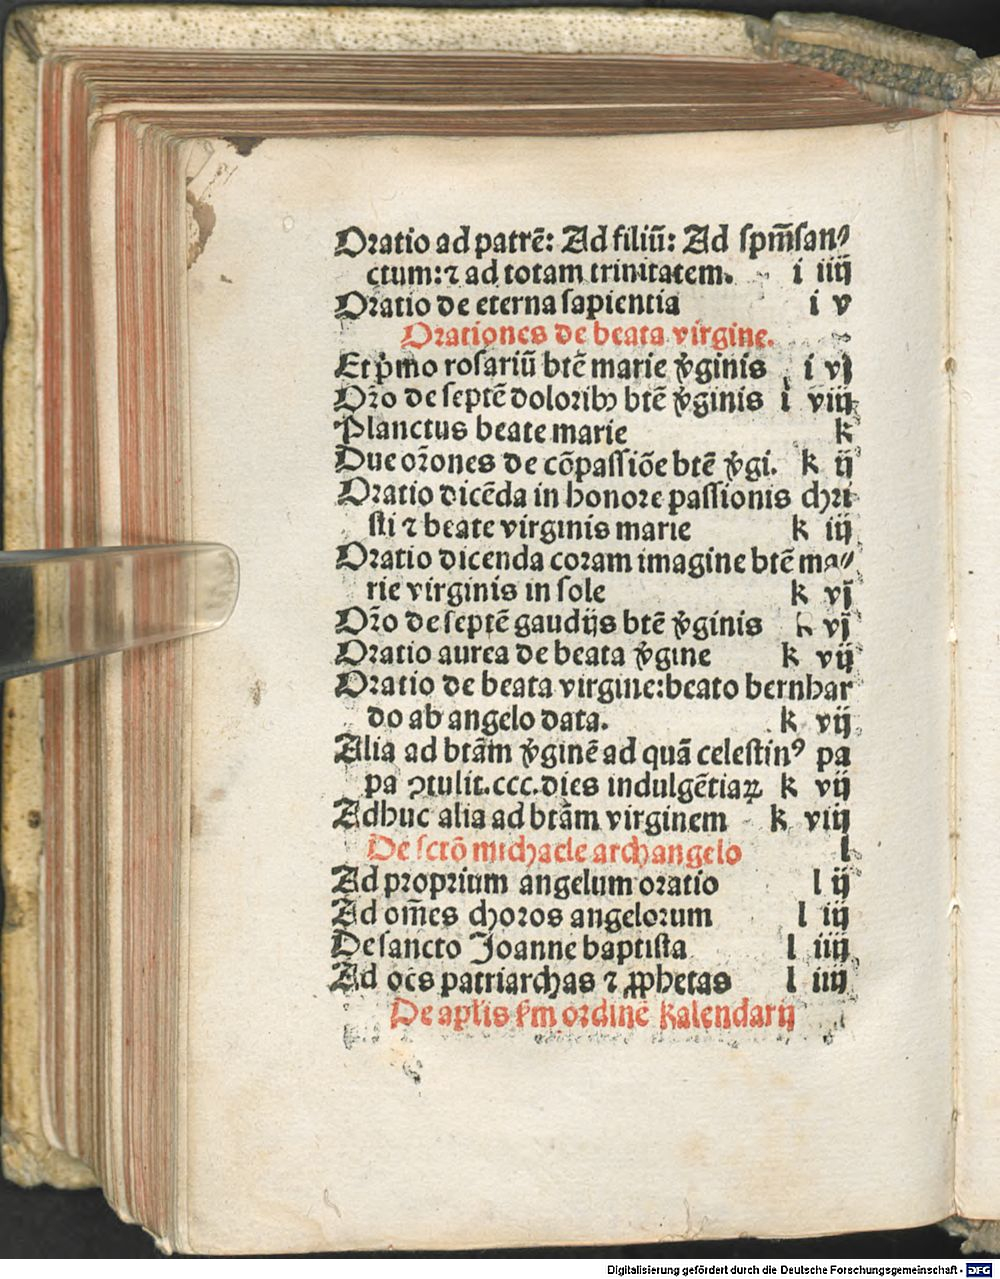 Oratio ad patrē: Ad filiū: Ad spm̄san⸗
ctum:⁊ ad totam trinitatem. i iiij
Oratio de eterna sapientia i v
Orationes de beata virgine.
Et p̓mo rosariū btē marie v̓ginis i vj
Oro̅ de septē doloribꝫ btē v̓ginis i viij
Planctus beate marie k
Due oro̅nes de cōpassiōe btē v̓gi. k ij
Oratio dicēda in honore passionis chri
sti ⁊ beate virginis marie k iij
Oratio dicenda coram imagine btē ma⸗
rie virginis in sole k vj
Oro̅ de septē gaudijs btē v̓ginis k vj
Oratio aurea de beata v̓gine k vij
Oratio de beata virgine:beato bernhar
do ab angelo data. k vij
Alia ad btām v̓ginē ad quā celestinꝰ pa
pa ꝯtulit.ccc.dies indulgētiaꝝ k vij
Adhuc alia ad btām virginem k viij
De sctō michaele archangelo l
Ad proprium angelum oratio l ij
Ad om̄es choros angelorum l iij
De sancto Joanne baptista l iiij
Ad oēs patriarchas ⁊ ꝓphetas l iiij
De aplis s̓m ordinē kalendarij
Digitalisierung gefördert durch die Deutsche Forschungsgemeinschaft - DFG